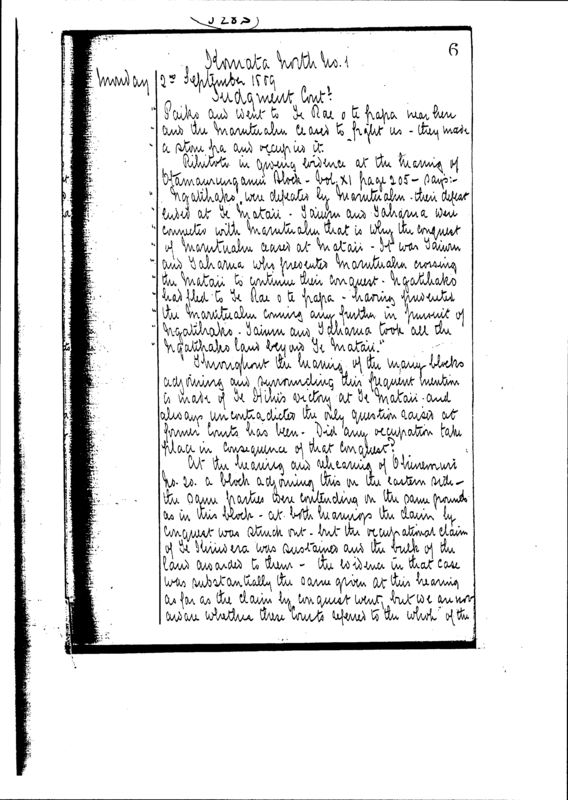 6
Komata North No. 1
Monday 2nd September 1889
Judgment Contd
Paiko and went to Te Rae o te papa near here
and the Marutuahu ceased to fight us - they made
a stone pa and occupied it.
in giving evidence at the hearing of
Block - Vol. XI page 205 - says:-
"Ngatihako were defeated by Marutuahu - their defeat
ended at Te Matai - Taiuru and Taharua were
connected with Marutuahu that is why the conquest
of Marutuahu ceased at Matai - It was Taiuru
and Taharua who prevented Marutuahu crossing
the Matai to continue their conquest - Ngatihako
had fled to Te Rae o te papa - having prevented
the Marutuahu coming any further in pursuit of
Ngatihako - Taiuru and Taharua took all the
Ngatihako land beyond Te Matai."
Throughout the hearing of the many blocks
adjoining and surrounding this frequent mention
is made of Te victory at Te Matai - and
always uncontradicted the only question raised at
former Courts has been - Did any occupation take
place in consequence of that conquest?
At the hearing and rehearing of Ohinemuri
No. 20. a block adjoining this on the eastern side -
the same parties were contending on the same grounds
as in this block - at both hearings the claim by
conquest was struck out - but the occupational claim
of Te was sustained and the bulk of the
land awarded to them - the evidence in that case
was substantially the same given at this hearing
as far as the claim by conquest went, but we are not
aware whether these Courts referred to the whole of the